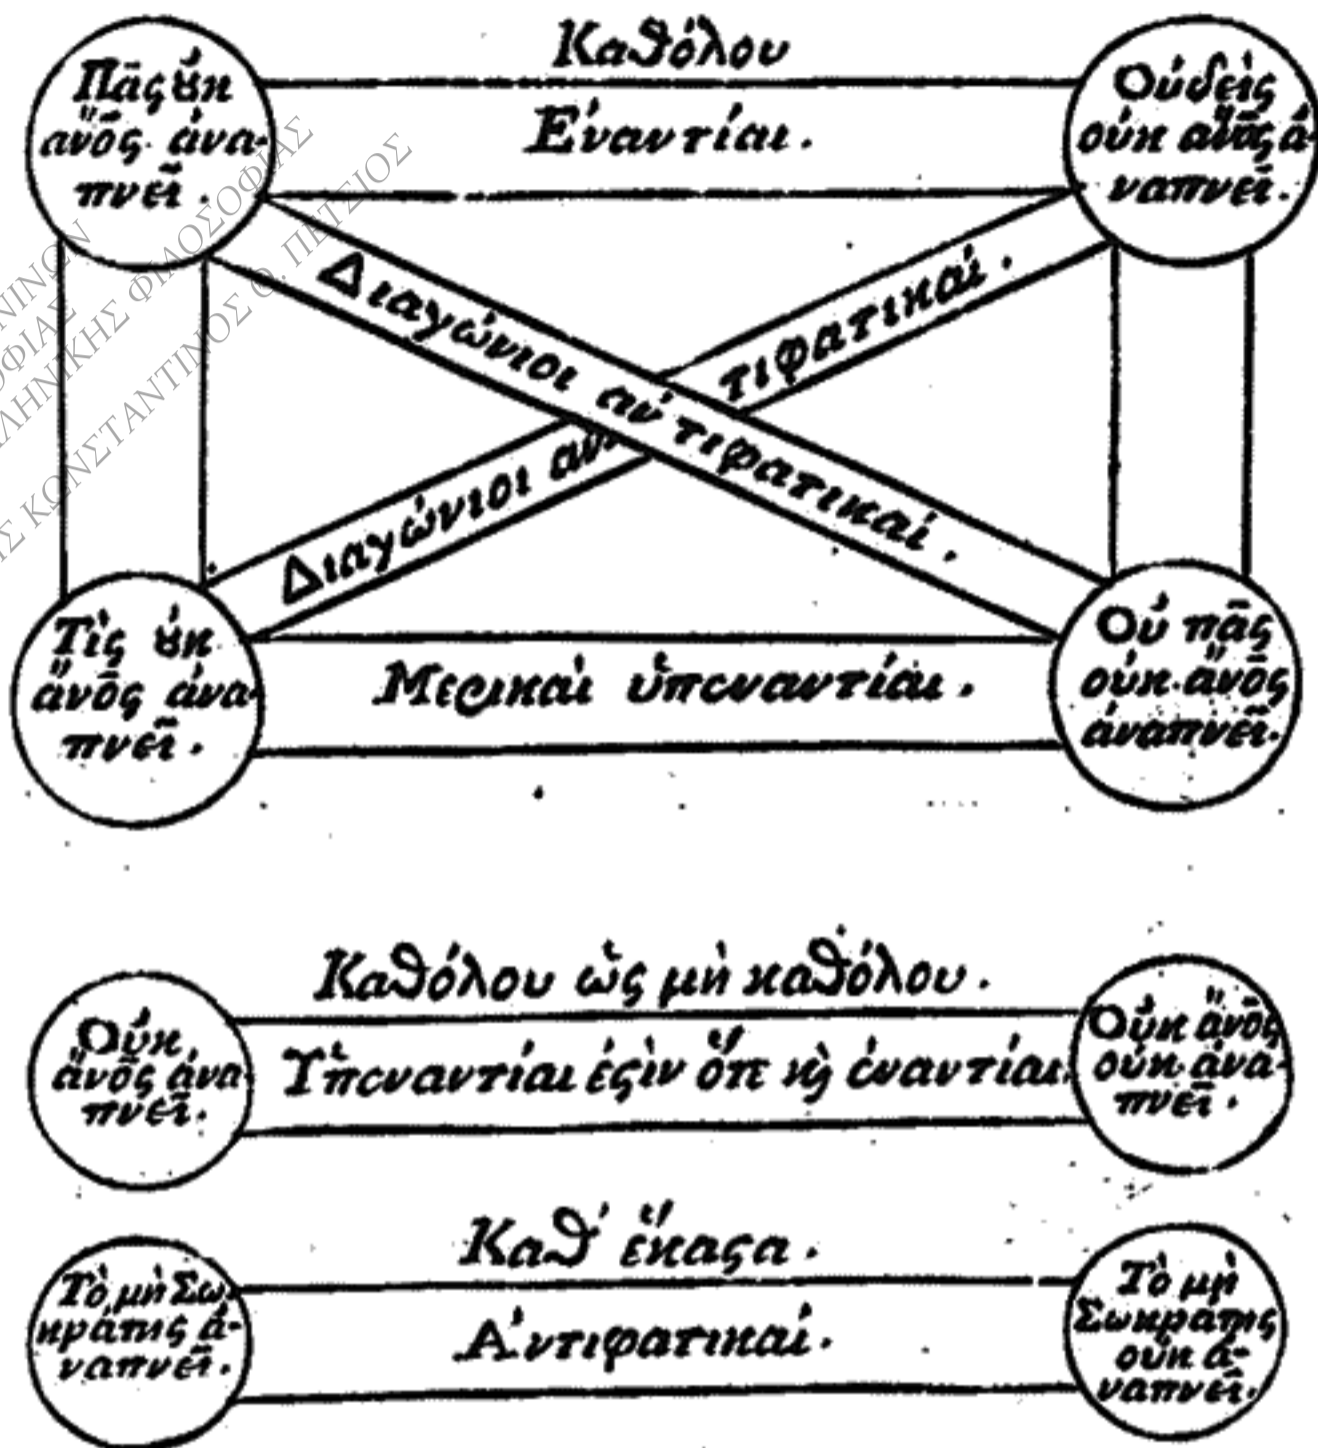 Καθόλου
Πᾶς ȣ̓κ
ἄνο̅ς ἀνα-
πνεῖ.
Ἐναντίαι.
Οὐδεὶς
οὐκ ἄνο̅ς ἀ-
ναπνεῖ.
Διαγώνιοι ἀντιφατικαί.
Διαγώνιοι ἀντιφατικαί.
Τὶς ȣ̓κ
ἄνο̅ς ἀνα-
πνεῖ.
Μερικαὶ ὑπεναντίαι.
Οὐ πᾶς
οὐκ ἄνο̅ς
ἀναπνεῖ.
Καθόλου ὡς μὴ καθόλου.
Οὐκ
ἄνο̅ς ἀνα-
πνεῖ.
Ὑπεναντίαι ἐϛὶν ὅτε ϗ ἐναντίαι.
Οὐκ ἄνο̅ς
οὐκ ἀνα-
πνεῖ.
Καθ' ἕκαϛα.
Τὸ μὴ Σω-
κράτης ἀ-
ναπνεῖ.
Ἀντιφατικαί.
Τὸ μὴ
Σωκράτης
οὐκ ἀ-
ναπνεῖ.
ΝΙΝΩΝ
ΟΦΙΑΣ
ΛΗΝΙΚΗΣ ΦΙΛΟΣΟΦΙΑΣ
Σ ΚΩΝΣΤΑΝΤΙΝΟΣ Θ. ΠΕΤΣΙΟΣ